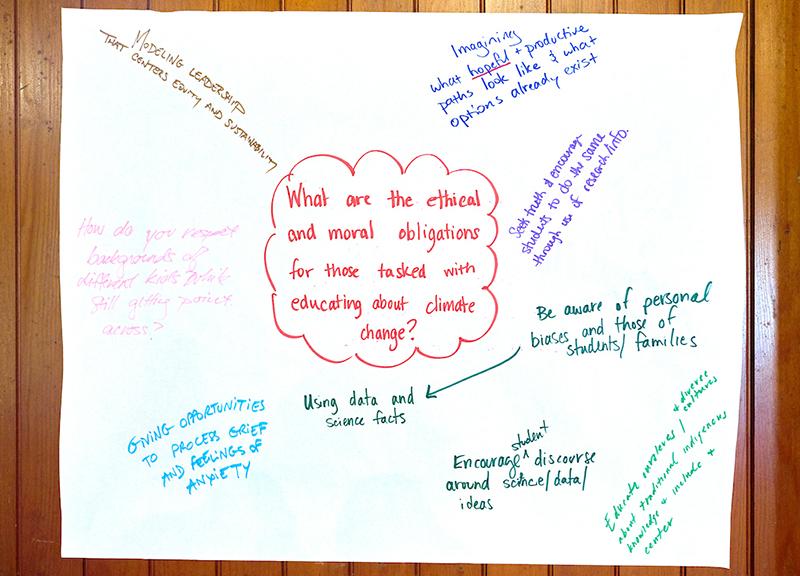 MODELING LEADERSHIP
THAT CENTERS EQUITY AND SUSTAINABILITY
Imagining
what hopeful + productive
paths look like & what
options already exist
Seek truth & encourage
students to do the same
through use of research/info.
What are the ethical
and moral obligations
for those tasked with
educating about climate
change?
How do you respect
backgrounds of
different kids while
still getting point
across?
Be aware of personal
biases and those of
students/ families
Using data and
science facts
GIVING OPPORTUNITIES
TO PROCESS GRIEF
AND FEELINGS OF
ANXIETY
student
Encourage ^ discourse
around science/data/
ideas
+ diverse
cultures
Educate ourselves /
about traditional indigenous
knowledge + include +
center